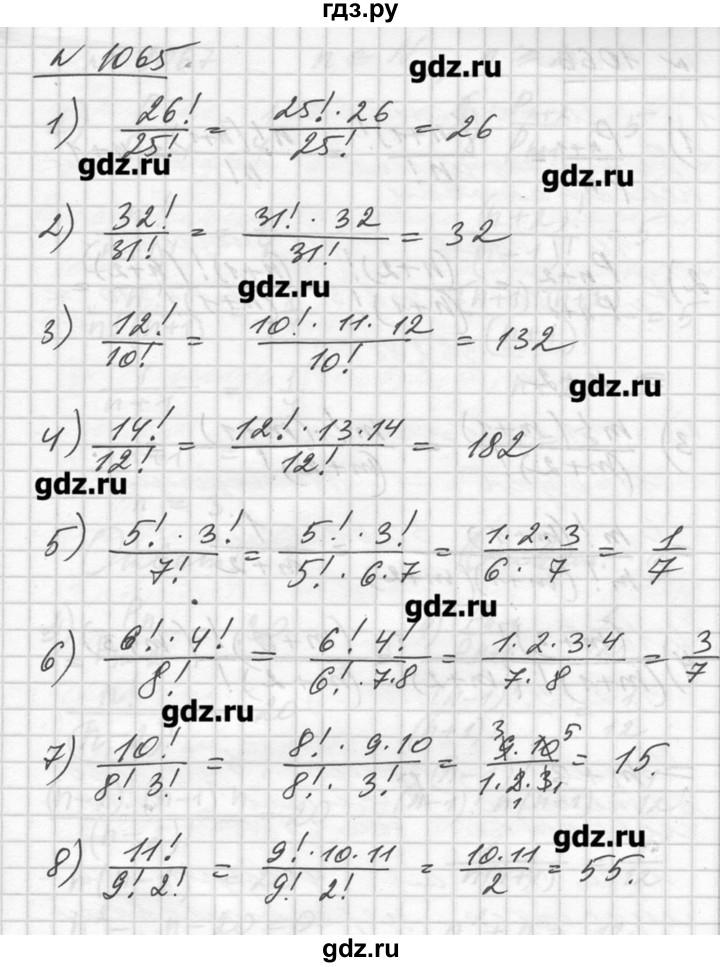 гдз.ру
№ 1065.
gdz.ru
1) 26!/25! = 25!·26/25! = 26
gdz.ru
gdz.ru
2) 32!/31! = 31!·32/31! = 32
gdz.ru
3) 12!/10! = 10!·11·12/10! = 132
gdz.ru
4) 14!/12! = 12!·13·14/12! = 182
gdz.ru
5) 5!·3!/7! = 5!·3!/5!·6·7 = 1·2·3/6·7 = 1/7
gdz.ru
6) 6!·4!/8! = 6! 4!/6!·7·8 = 1·2·3·4/7·8 = 3/7
gdz.ru
7) 10!/8! 3! = 8!·9·10/8!·3! = 3 9·10 5/1·2·3 1 1 = 15.
gdz.ru
8) 11!/9! 2! = 9!·10·11/9! 2! = 10·11/2 = 55.
gdz.ru